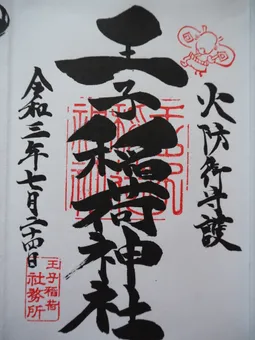 火防御守護
王子稲荷神社
令和三年七月二十四日
王子稲荷
社務所